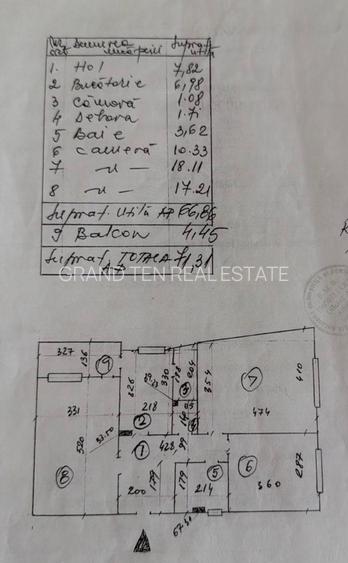 Denumirea Supraf.
încăperii utilă
1. Hol 7,82
2 Bucătărie 6,98
3 Cămară 1.08
4 Debara 1.71
5 Baie 3,62
6 cameră 10.33
7 —〃— 18.11
8 —〃— 17.21
Supraf. Utilă Ap 66,86
9 Balcon 4,45
Supraf. TOTALĂ 71,31
GRAND TEN REAL ESTATE
327 136 9
326 330 188 204 354 410
3 7
331 218 474
2
1 428 99
520 5 6
8 179 179 287
200 214 360